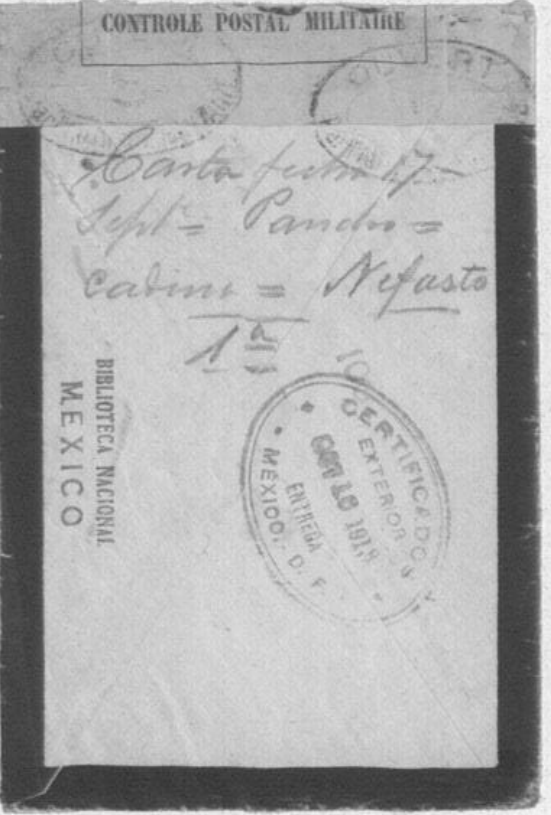 CONTROLE POSTAL MILITAIRE
OUVERT
Carta fecha 17
Sept = Pancho =
= Nefasto
1ª
BIBLIOTECA NACIONAL
MEXICO
CERTIFICADO
EXTERIOR
18 1918
ENTREGA
MÉXICO, D. F.